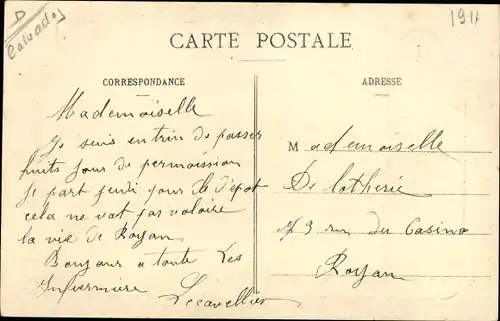 D
Calvados
1911
CARTE POSTALE
CORRESPONDANCE
ADRESSE
Mademoiselle
Je suis entrin de passer
huits jour de permoission
Je part jeudi pour le dépot
cela ne vat pas valoire
la vie de Royan
Bonjour a toute Les
Infirmiere
Lecavellier
Mademoiselle
De lotherie
73 rue du Casino
Royan